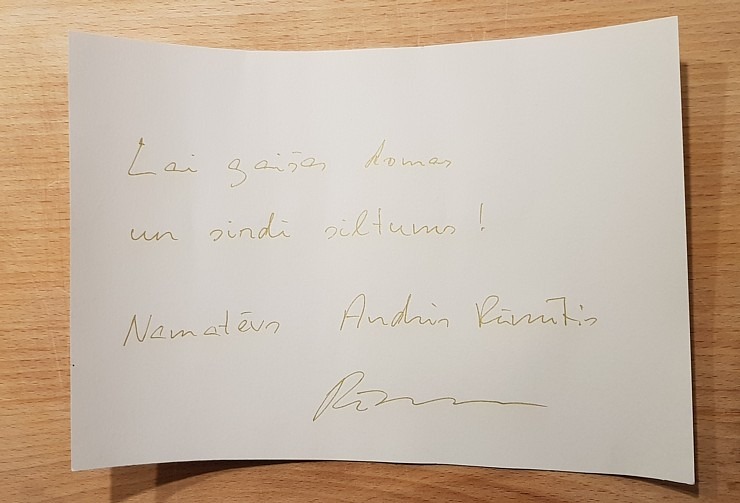 Lai gaišas domas
un sirdī siltums!
Namatēvs Andris